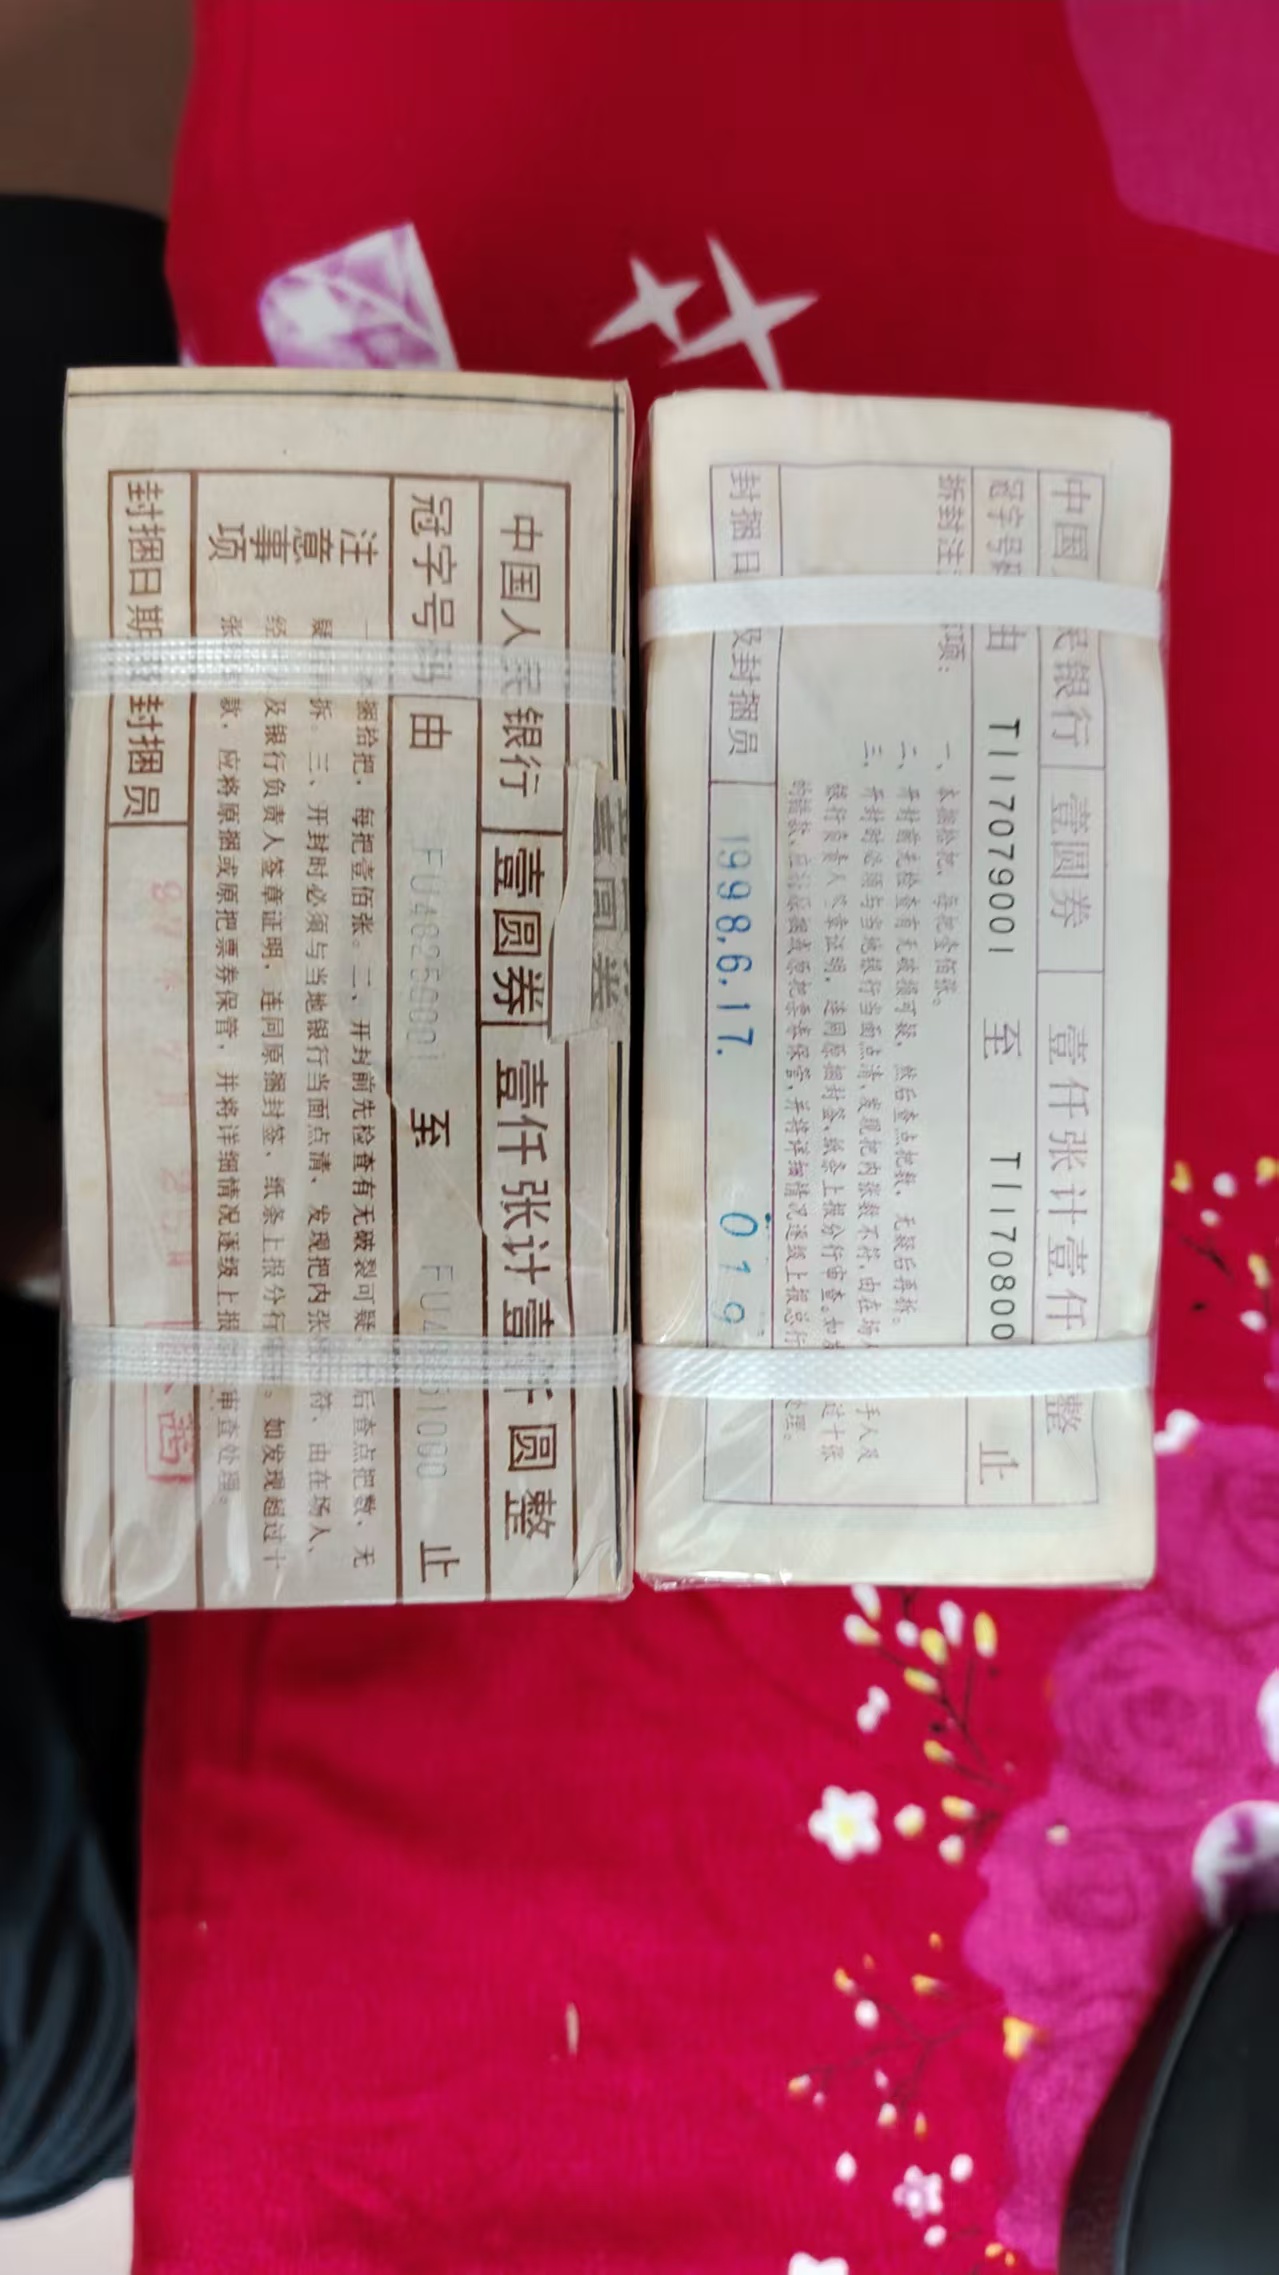 中国人民银行 壹圆券 壹仟张计壹仟圆整
冠字号码 由 至 FU4 51000 止
注意事项
捆拾把，每把壹佰张。二、开封前先检查有无破裂可疑 后查点把数，无
疑 拆。三、开封时必须与当地银行当面点清，发现把内张 符，由在场人、
经 及银行负责人签章证明，连同原捆封签、纸条上报分行 。如发现超过十
张 款，应将原捆或原把票券保管，并将详细情况逐级上报 审查处理。
封捆日期 封捆员
壹圆券
中国 民银行 壹圆券 壹仟张计壹仟 整
冠字号 由 TI17079001 至 TI170800 止
拆封注 项：
一、本捆拾把，每把壹佰张。
二、开封前先检查有无破损可疑，然后查点把数，无疑后再拆。
三、开封时必须与当地银行当面点清，发现把内张数不符，由在场 手人及
银行负责人 章证明，连同原捆封签、纸条上报分行审查。如 过十张
的错款，应将原捆或原把票券保管，并将详细情况逐级上报总行 处理。
封捆日 及封捆员 1998.6.17. 019